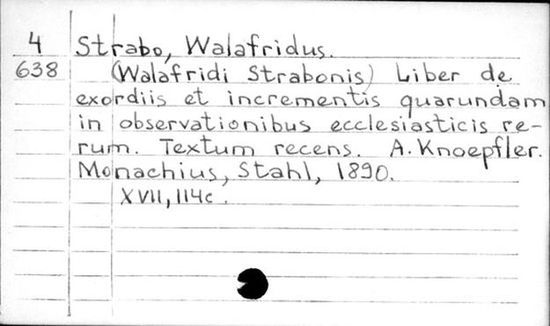 4 Strabo, Walafridus.
638 (Walafridi Strabonis) Liber de
exordiis et incrementis quarundam
in observationibus ecclesiasticis re-
rum. Textum recens. A. Knoepfler.
Monachius, Stahl, 1890.
XVII, 114c.